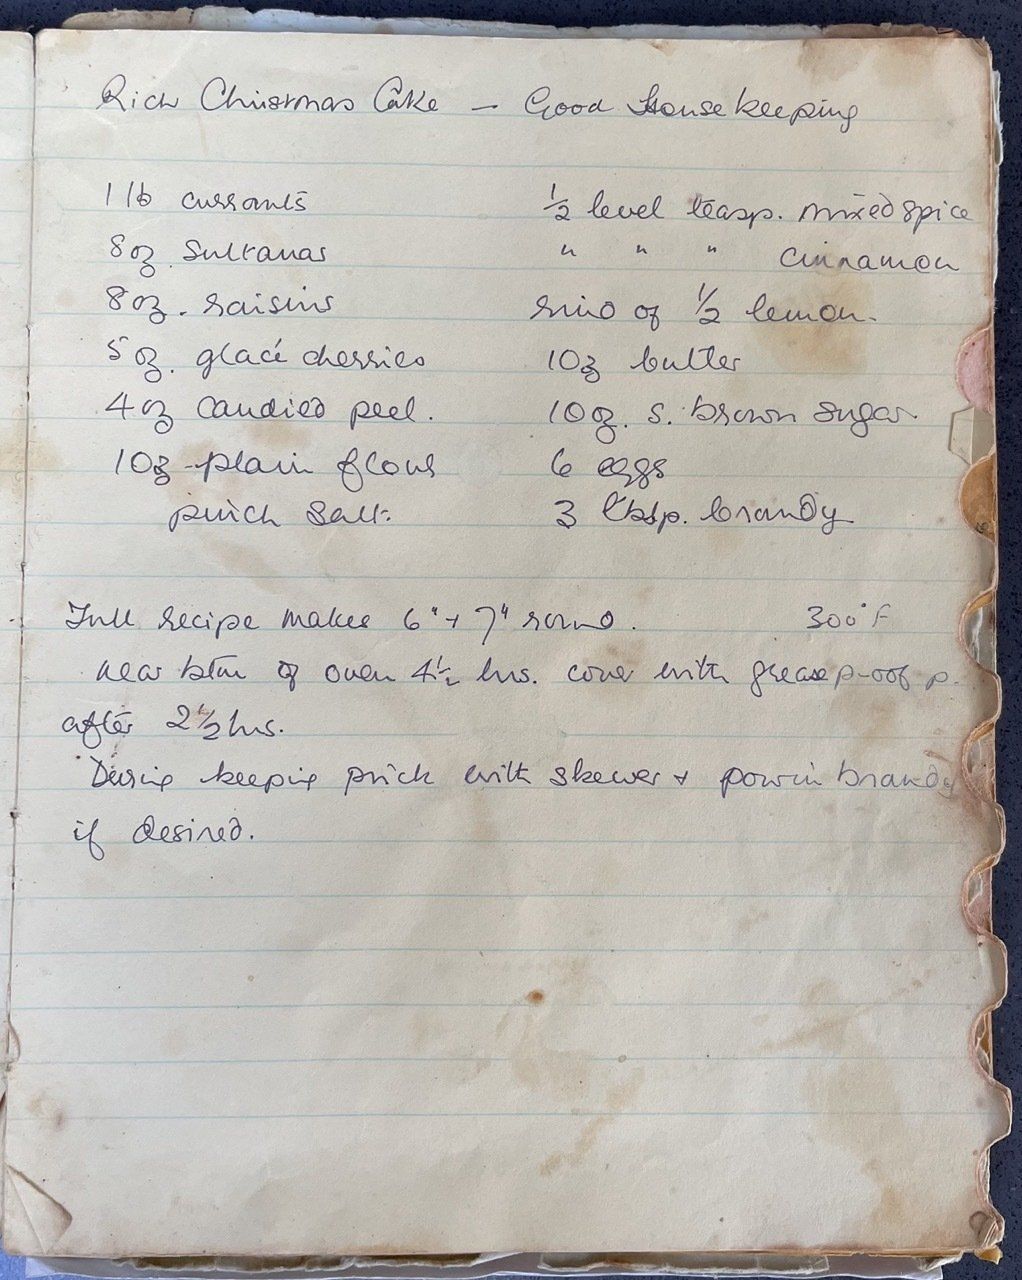 Rich Christmas Cake — Good Housekeeping
1 lb currants
8oz. Sultanas
8oz. raisins
5oz. glacé cherries
4oz candied peel.
10oz plain flour
pinch salt.
½ level teasp. mixed spice
" " " cinnamon
rind of ½ lemon.
10oz butter
10oz. s. brown sugar
6 eggs
3 tbsp. brandy
Full recipe makes 6" + 7" round. 300°F
near btm of oven 4½ hrs. cover with greaseproof p.
after 2½ hrs.
During keeping prick with skewer + pour in brandy
if desired.